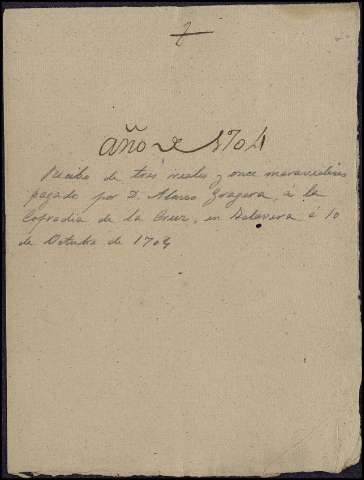 año de 1704
Recibo de tres reales y once maravedises
pagado por D. Alonso Gragera, a la
Cofradia de la Cruz, en Talavera á 10
de Octubre de 1704